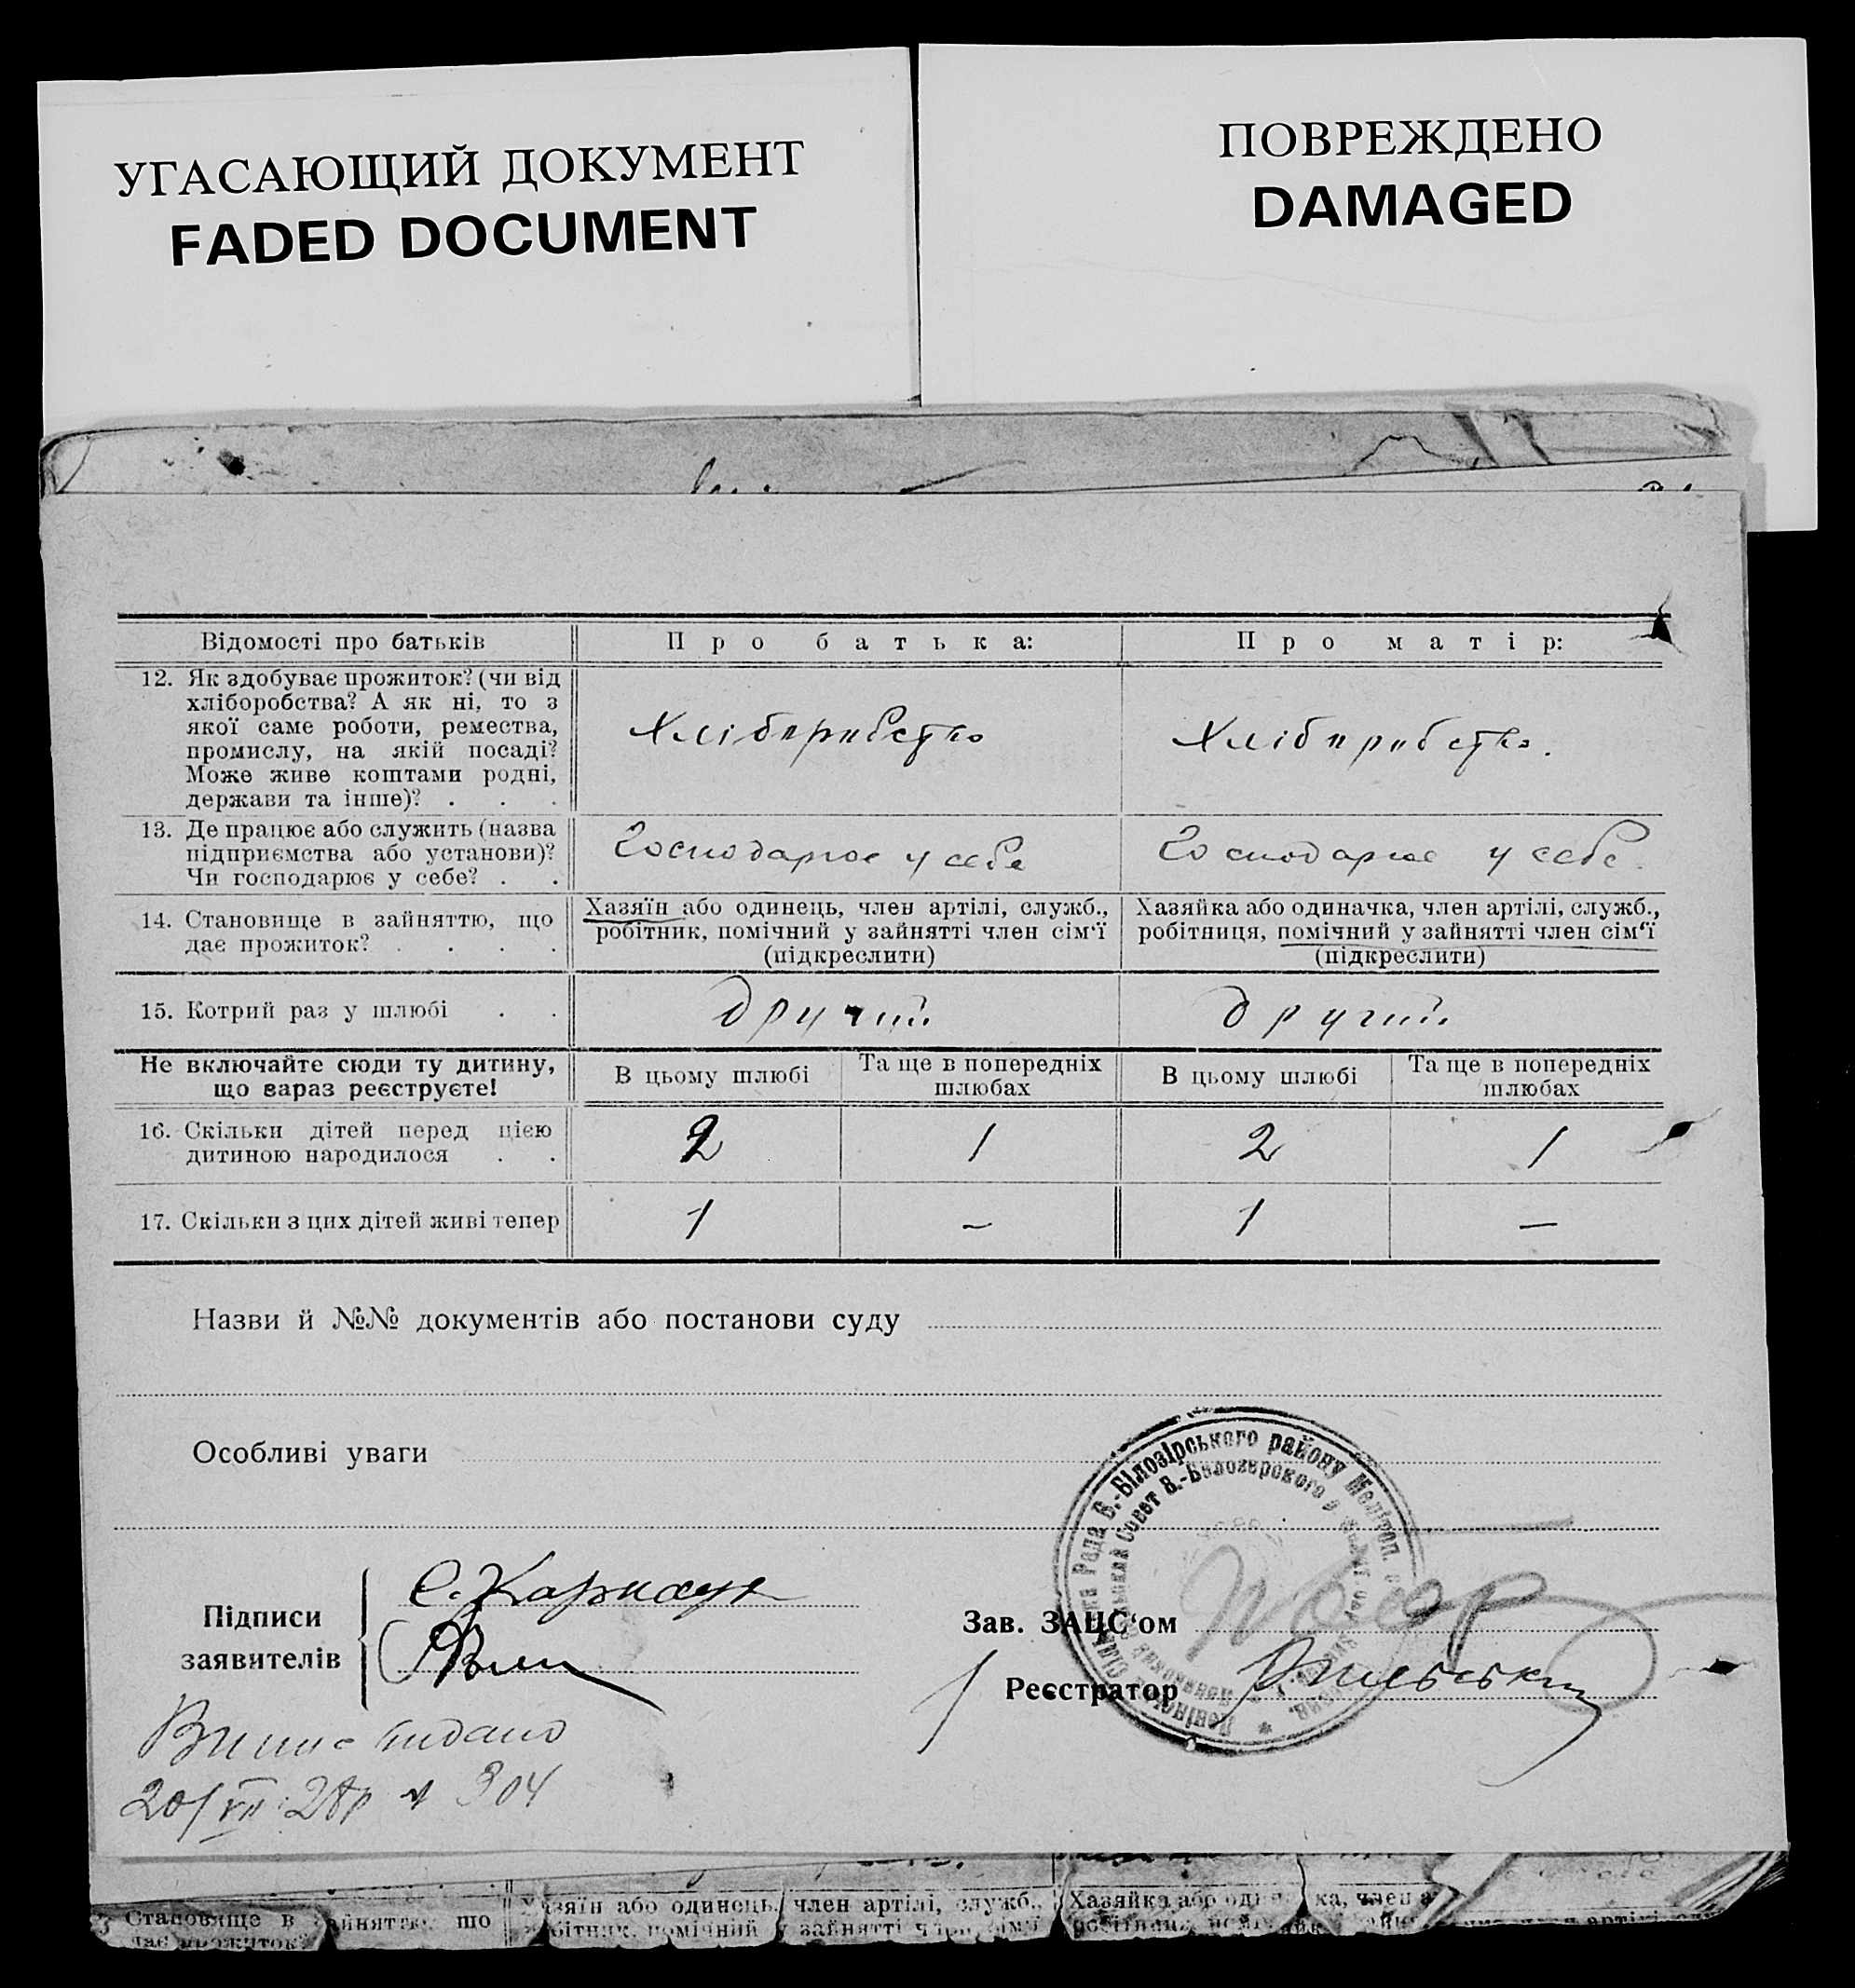 УГАСАЮЩИЙ ДОКУМЕНТ
FADED DOCUMENT
ПОВРЕЖДЕНО
DAMAGED
Відомості про батьків
Про батька:
Про матір:
12. Як здобуває прожиток? (чи від
хліборобства? А як ні, то з
якої саме роботи, ремества,
промислу, на якій посаді?
Може живе коштами родні,
держави та інше)? . . .
Хліборобство
Хліборобство.
13. Де працює або служить (назва
підприємства або установи)?
Чи господарює у себе? . .
Господарює у себе
Господарює у себе.
14. Становище в зайняттю, що
дає прожиток? . . . .
Хазяїн або одинець, член артілі, служб.,
робітник, помічний у зайнятті член сім‘ї
(підкреслити)
Хазяйка або одиначка, член артілі, служб.,
робітниця, помічний у зайнятті член сім‘ї
(підкреслити)
15. Котрий раз у шлюбі . .
другий
другий
Не включайте сюди ту дитину,
що зараз реєструєте!
В цьому шлюбі
Та ще в попередніх
шлюбах
В цьому шлюбі
Та ще в попередніх
шлюбах
16. Скільки дітей перед цією
дитиною народилося . .
2
1
2
1
17. Скільки з цих дітей живі тепер
1
–
1
–
Назви й №№ документів або постанови суду
Особливі уваги
Рада В.-Білозірського району Мелітоп.
Совет В.-Белозерского
Підписи
заявителів
С. Карнаух
Зав. ЗАЦС‘ом
Реєстратор
видано
20/VII 28р № 304
Становище в зайняттю, що
дає прожиток?
Хазяїн або одинець, член артілі, служб.,
робітник, помічний у зайнятті член сім‘ї